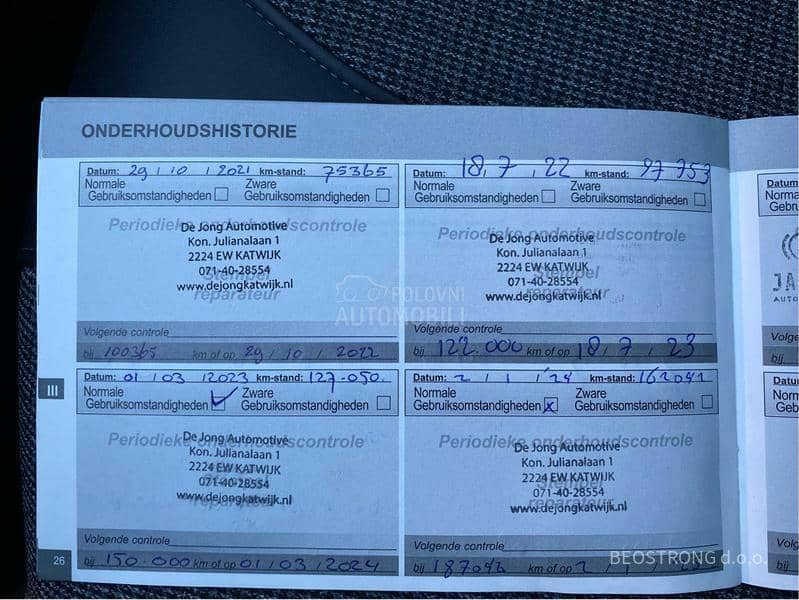 ONDERHOUDSHISTORIE
Datum: 29 / 10 / 2021 km-stand: 75365
Normale Gebruiksomstandigheden
Zware Gebruiksomstandigheden
Periodieke onderhoudscontrole
De Jong Automotive
Kon. Julianalaan 1
2224 EW KATWIJK
071-40-28554
Stempel
www.dejongkatwijk.nl
reparateur
Volgende controle
bij 100365 km of op 29 / 10 / 2022
Datum: 18, 7, 22 km-stand: 97753
Normale Gebruiksomstandigheden
Zware Gebruiksomstandigheden
Periodieke onderhoudscontrole
De Jong Automotive
Kon. Julianalaan 1
2224 EW KATWIJK
Stempel
071-40-28554
www.dejongkatwijk.nl
reparateur
Volgende controle
bij 122.000 km of op 18 / 7 / 23
Datum: 01 / 03 / 2023 km-stand: 127-050.
Normale Gebruiksomstandigheden
Zware Gebruiksomstandigheden
Periodieke onderhoudscontrole
De Jong Automotive
Kon. Julianalaan 1
2224 EW KATWIJK
071-40-28554
www.dejongkatwijk.nl
Volgende controle
bij 150.000 km of op 01 / 03 / 2024
Datum: 2 / 1 / '24 km-stand: 162042
Normale Gebruiksomstandigheden
Zware Gebruiksomstandigheden
Periodieke onderhoudscontrole
De Jong Automotive
Kon. Julianalaan 1
2224 EW KATWIJK
Stempel
071-40-28554
www.dejongkatwijk.nl
Volgende controle
bij 187042 km of op 2 / 1 /
III
26
Datum
Norma
Gebru
JA
AUTO
Volge
bij
Datum
Norm
Geb
Volg
bij
POLOVNI
AUTOMOBILI
BEOSTRONG d.o.o.